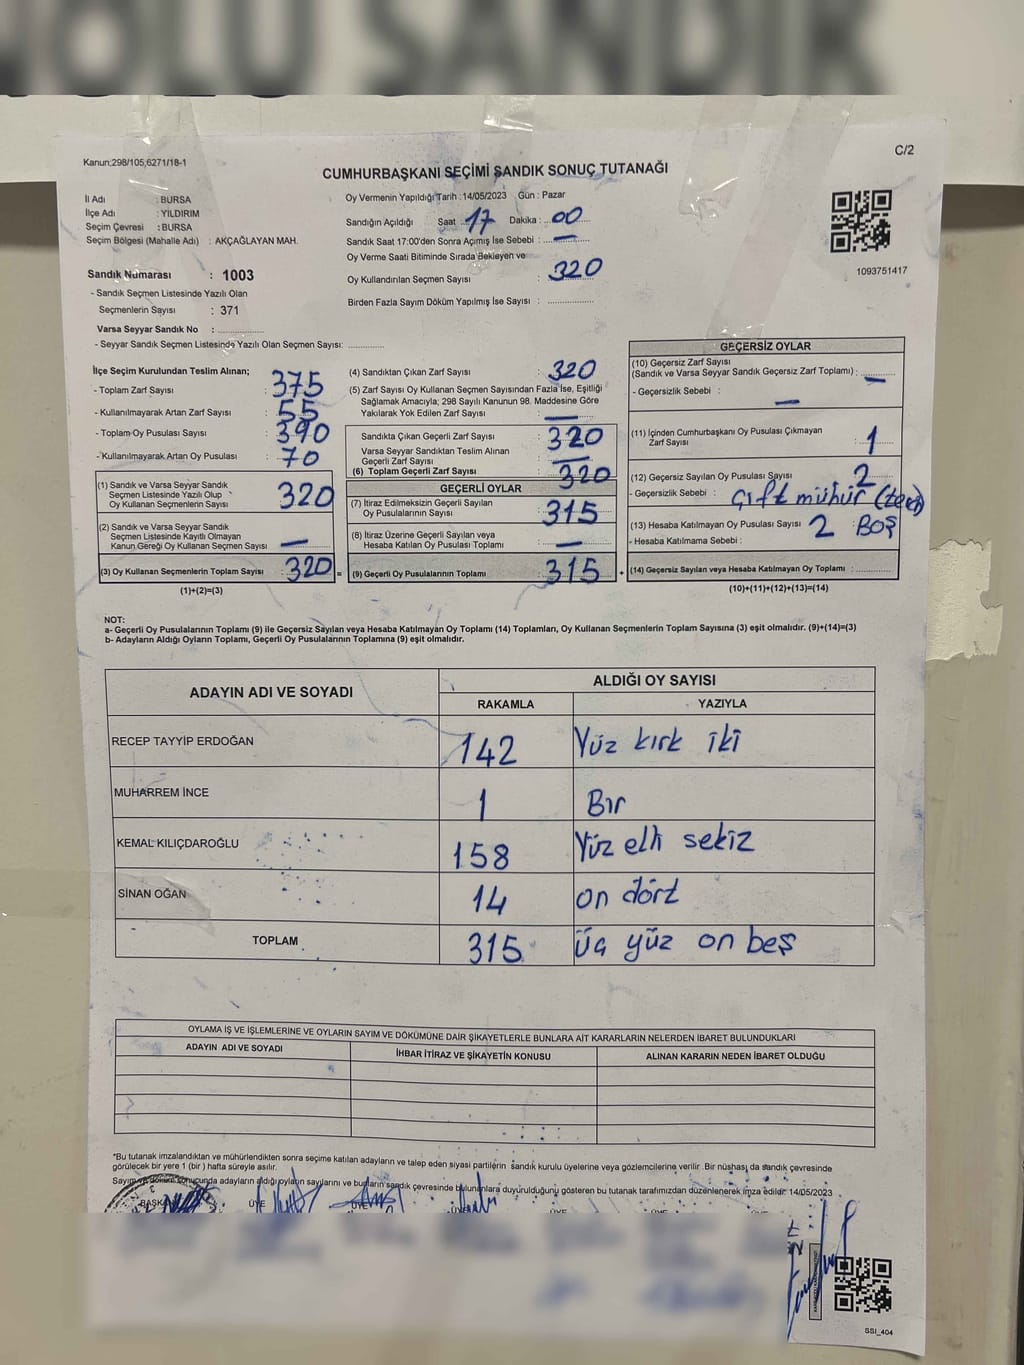 NOLU SANDIK
Kanun:298/105,6271/18-1
C/2
CUMHURBAŞKANI SEÇİMİ SANDIK SONUÇ TUTANAĞI
İl Adı : BURSA
İlçe Adı : YILDIRIM
Seçim Çevresi : BURSA
Seçim Bölgesi (Mahalle Adı) : AKÇAĞLAYAN MAH.
Sandık Numarası : 1003
- Sandık Seçmen Listesinde Yazılı Olan
Seçmenlerin Sayısı : 371
Varsa Seyyar Sandık No : ..............
- Seyyar Sandık Seçmen Listesinde Yazılı Olan Seçmen Sayısı: ............
Oy Vermenin Yapıldığı Tarih : 14/05/2023 Gün : Pazar
Sandığın Açıldığı Saat : 17 Dakika : 00
Sandık Saat 17:00'den Sonra Açımış İse Sebebi : —
Oy Verme Saati Bitiminde Sırada Bekleyen ve
Oy Kullandırılan Seçmen Sayısı : 320
Birden Fazla Sayım Döküm Yapılmış İse Sayısı : ..............
1093751417
İlçe Seçim Kurulundan Teslim Alınan;
- Toplam Zarf Sayısı : 375
- Kullanılmayarak Artan Zarf Sayısı : 55
- Toplam Oy Pusulası Sayısı : 390
- Kullanılmayarak Artan Oy Pusulası : 70
(1) Sandık ve Varsa Seyyar Sandık
Seçmen Listesinde Yazılı Olup
Oy Kullanan Seçmenlerin Sayısı : 320
(2) Sandık ve Varsa Seyyar Sandık
Seçmen Listesinde Kayıtlı Olmayan
Kanun Gereği Oy Kullanan Seçmen Sayısı : —
(3) Oy Kullanan Seçmenlerin Toplam Sayısı : 320 =
(1)+(2)=(3)
(4) Sandıktan Çıkan Zarf Sayısı : 320
(5) Zarf Sayısı Oy Kullanan Seçmen Sayısından Fazla İse, Eşitliği
Sağlamak Amacıyla; 298 Sayılı Kanunun 98. Maddesine Göre
Yakılarak Yok Edilen Zarf Sayısı : —
Sandıkta Çıkan Geçerli Zarf Sayısı : 320
Varsa Seyyar Sandıktan Teslim Alınan
Geçerli Zarf Sayısı : —
(6) Toplam Geçerli Zarf Sayısı : 320
GEÇERLİ OYLAR
(7) İtiraz Edilmeksizin Geçerli Sayılan
Oy Pusulalarının Sayısı : 315
(8) İtiraz Üzerine Geçerli Sayılan veya
Hesaba Katılan Oy Pusulası Toplamı : —
(9) Geçerli Oy Pusulalarının Toplamı : 315 +
GEÇERSİZ OYLAR
(10) Geçersiz Zarf Sayısı
(Sandık ve Varsa Seyyar Sandık Geçersiz Zarf Toplamı) : —
- Geçersizlik Sebebi : —
(11) İçinden Cumhurbaşkanı Oy Pusulası Çıkmayan
Zarf Sayısı : 1
(12) Geçersiz Sayılan Oy Pusulası Sayısı : 2
- Geçersizlik Sebebi : Çift mühür
(13) Hesaba Katılmayan Oy Pusulası Sayısı : 2 BOŞ
- Hesaba Katılmama Sebebi :
(14) Geçersiz Sayılan veya Hesaba Katılmayan Oy Toplamı : ............
(10)+(11)+(12)+(13)=(14)
NOT:
a- Geçerli Oy Pusulalarının Toplamı (9) ile Geçersiz Sayılan veya Hesaba Katılmayan Oy Toplamı (14) Toplamları, Oy Kullanan Seçmenlerin Toplam Sayısına (3) eşit olmalıdır. (9)+(14)=(3)
b- Adayların Aldığı Oyların Toplamı, Geçerli Oy Pusulalarının Toplamına (9) eşit olmalıdır.
ADAYIN ADI VE SOYADI ALDIĞI OY SAYISI
RAKAMLA YAZIYLA
RECEP TAYYİP ERDOĞAN 142 Yüz kırk iki
MUHARREM İNCE 1 Bir
KEMAL KILIÇDAROĞLU 158 Yüz elli sekiz
SİNAN OĞAN 14 on dört
TOPLAM 315 üç yüz on beş
OYLAMA İŞ VE İŞLEMLERİNE VE OYLARIN SAYIM VE DÖKÜMÜNE DAİR ŞİKAYETLERLE BUNLARA AİT KARARLARIN NELERDEN İBARET BULUNDUKLARI
ADAYIN ADI VE SOYADI İHBAR İTİRAZ VE ŞİKAYETİN KONUSU ALINAN KARARIN NEDEN İBARET OLDUĞU
*Bu tutanak imzalandıktan ve mühürlendikten sonra seçime katılan adayların ve talep eden siyasi partilerin sandık kurulu üyelerine veya gözlemcilerine verilir. Bir nüshası da sandık çevresinde
görülecek bir yere 1 (bir) hafta süreyle asılır.
Sayım ve döküm sonucunda adayların aldığı oyların sayılarını ve bunların sandık çevresinde bulunanlara duyurulduğunu gösteren bu tutanak tarafımızdan düzenlenerek imza edildi. 14/05/2023
BAŞKAN ÜYE ÜYE ÜYE ÜYE ÜYE ÜYE
SSI_404